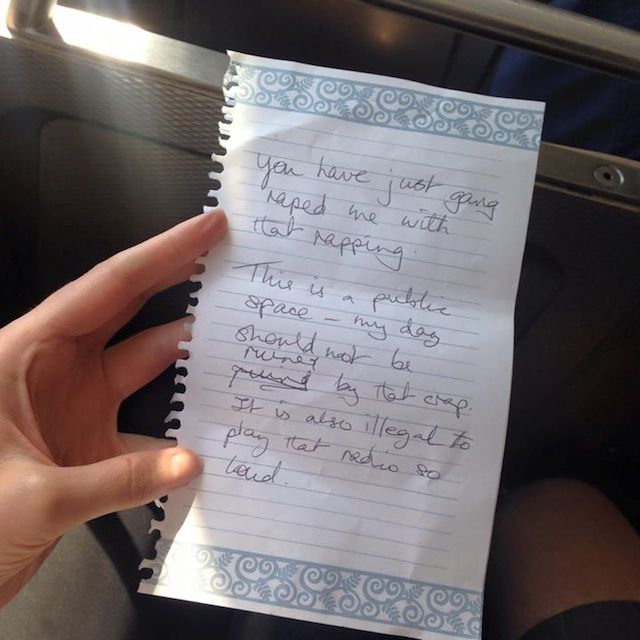 You have just gang
raped me with
that rapping.
This is a public
space – my day
should not be
ruined
by that crap.
It is also illegal to
play that radio so
loud.